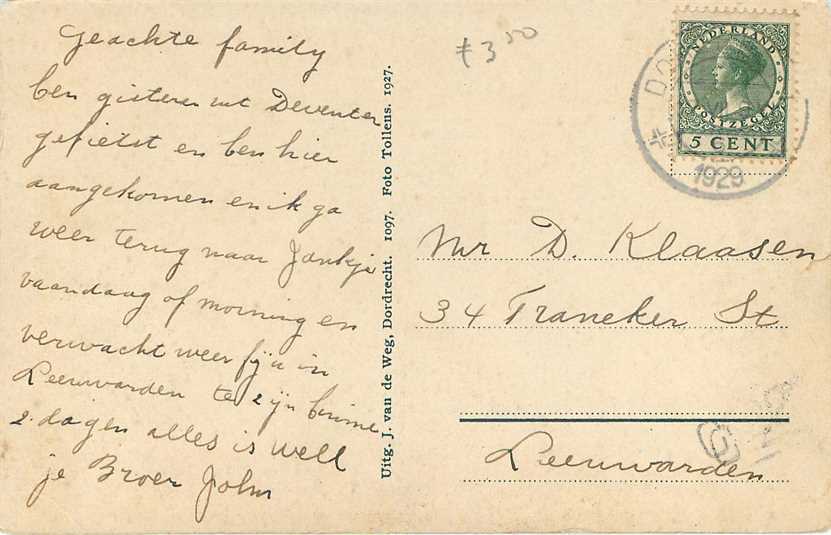 Geachte family
ben gisteren uit Deventer
gefietst en ben hier
aangekomen en ik ga
weer terug naar Jankje
vaandaag of morning en
verwacht weer by u in
Leeuwarden te zijn binne
2. dagen alles is well
je Broer John
Uitg. J. van de Weg, Dordrecht. 1097. Foto Tollens. 1927.
f 3 50
NEDERLAND
POSTZEGEL
5 CENT
1929
Mr D. Klaasen
34 Franeker St
Leeuwarden